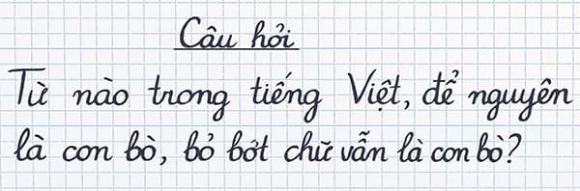 Câu hỏi
Từ nào trong tiếng Việt, để nguyên
là con bò, bỏ bớt chữ vẫn là con bò?